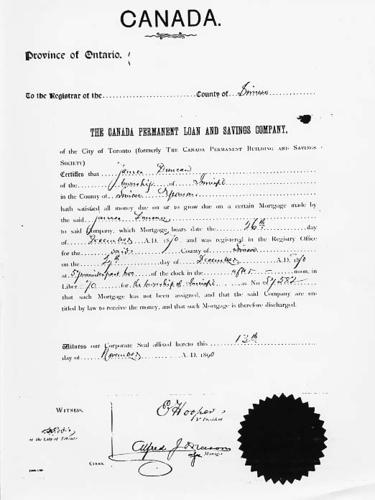 CANADA.
Province of Ontario.
To the Registrar of the County of Simcoe
THE CANADA PERMANENT LOAN AND SAVINGS COMPANY,
of the City of Toronto (formerly THE CANADA PERMANENT BUILDING AND SAVINGS
SOCIETY)
Certifies that James Duncan
of the township of Innisfil
in the County of Simcoe
hath satisfied all money due on or to grow due on a certain Mortgage made by
the said James Duncan
to said Company, which Mortgage bears date the 26th day
of December A.D. and was registered in the Registry Office
for the said County of Simcoe
on the day of December A.D.
at of the clock in the noon, in
Liber for the township of Innisfil as No
that such Mortgage has not been assigned, and that the said Company are en-
titled by law to receive the money, and that such Mortgage is therefore discharged.
Witness our Corporate Seal affixed hereto this 13th
day of November A.D. 1890
WITNESS,
E Hooper
President
of the City of Toronto
Alfred J.
Manager
Clerk.